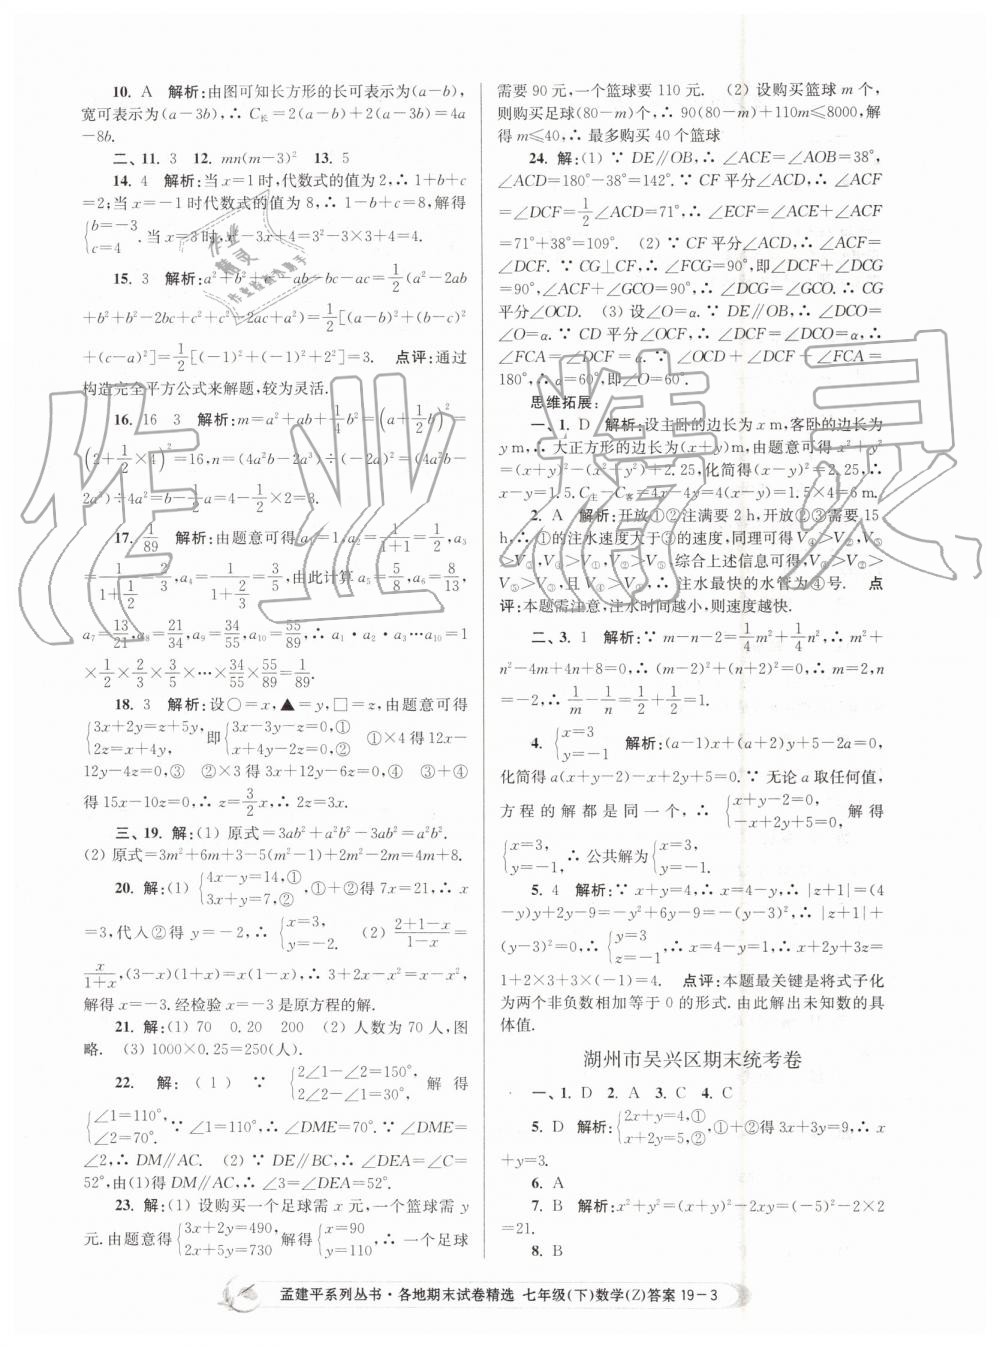 10. A 解析:由图可知长方形的长可表示为(a-b),
宽可表示为(a-3b),∴ C长=2(a-b)+2(a-3b)=4a
-8b.
二、11. 3 12. mn(m-3)² 13. 5
14. 4 解析:当x=1时,代数式的值为2,∴ 1+b+c
=2;当x=-1时代数式的值为8,∴ 1-b+c=8,解得
{b=-3
c=4 .当x=3时,x²-3x+4=3²-3×3+4=4.
15. 3 解析:a²+b²+c²-ab-bc-ac=1/2(a²-2ab
+b²+b²-2bc+c²+c²-2ac+a²)=1/2[(a-b)²+(b-c)²
+(c-a)²]=1/2[(-1)²+(-1)²+2²]=3. 点评:通过
构造完全平方公式来解题,较为灵活.
16. 16 3 解析:m=a²+ab+1/4b²=(a+1/2b)²=
(2+1/2×4)²=16,n=(4a²b-2a³)÷(-2a)²=(4a²b-
2a³)÷4a²=b-1/2a=4-1/2×2=3.
17. 1/89 解析:由题意可得a₁=1,a₂=1/(1+1)=1/2,a₃
=1/(1+1/2)=2/3,a₄=3/5,由此计算a₅=5/8,a₆=8/13,
a₇=13/21,a₈=21/34,a₉=34/55,a₁₀=55/89,∴ a₁·a₂·a₃…a₁₀=1
×1/2×2/3×3/5×…×34/55×55/89=1/89.
18. 3 解析:设○=x,▲=y,□=z,由题意可得
{3x+2y=z+5y,
2z=x+4y, 即{3x-3y-z=0,①
x+4y-2z=0;② ①×4得12x-
12y-4z=0,③ ②×3得3x+12y-6z=0,④ ③+④
得15x-10z=0,∴ z=3/2x,∴ 2z=3x.
三、19. 解:(1) 原式=3ab²+a²b²-3ab²=a²b².
(2) 原式=3m²+6m+3-5(m²-1)+2m²-2m=4m+8.
20. 解:(1) {4x-y=14,①
3x+y=7,② ,①+②得7x=21,∴ x
=3,代入②得y=-2,∴ {x=3,
y=-2. (2) (2+1-x)/(1-x)=
x/(1+x),(3-x)(1+x)=x(1-x),∴ 3+2x-x²=x-x²,
解得x=-3.经检验x=-3是原方程的解.
21. 解:(1) 70 0.20 200 (2) 人数为70人,图
略. (3) 1000×0.25=250(人).
22. 解:(1) ∵ {2∠1-∠2=150°,
2∠2-∠1=30°, 解得
{∠1=110°,
∠2=70°. ∵ ∠1=110°,∴ ∠DME=70°. ∵ ∠DME=
∠2,∴ DM∥AC. (2) ∵ DE∥BC,∴ ∠DEA=∠C=
52°,由(1)得DM∥AC,∴ ∠3=∠DEA=52°.
23. 解:(1) 设购买一个足球需x元,一个篮球需y
元.由题意得{3x+2y=490,
2x+5y=730 解得{x=90
y=110 ∴ 一个足球
需要90元,一个篮球要110元. (2) 设购买篮球m个,
则购买足球(80-m)个,∴ 90(80-m)+110m≤8000,解
得m≤40,∴ 最多购买40个篮球
24. 解:(1) ∵ DE∥OB,∴ ∠ACE=∠AOB=38°,
∠ACD=180°-38°=142°. ∵ CF平分∠ACD,∴ ∠ACF
=∠DCF=1/2∠ACD=71°,∴ ∠ECF=∠ACE+∠ACF
=71°+38°=109°. (2) ∵ CF平分∠ACD,∴ ∠ACF=
∠DCF. ∵ CG⊥CF,∴ ∠FCG=90°,即∠DCF+∠DCG
=90°,∠ACF+∠GCO=90°,∴ ∠DCG=∠GCO.∴ CG
平分∠OCD. (3) 设∠O=α.∵ DE∥OB,∴ ∠DCO=
∠O=α.∵ CD平分∠OCF,∴ ∠DCF=∠DCO=α,∴
∠FCA=∠DCF=α. ∵ ∠OCD+∠DCF+∠FCA=
180°,∴ α=60°,即∠O=60°.
思维拓展:
一、1. D 解析:设主卧的边长为x m,客卧的边长为
y m,∴ 大正方形的边长为(x+y)m,由题意可得x²+y²
=(x+y)²-(x²+y²)+2.25,化简得(x-y)²=2.25,∴
x-y=1.5.C主-C客=4x-4y=4(x-y)=1.5×4=6 m.
2. A 解析:开放①②注满要2 h,开放②③需要15
h,∴ ①的注水速度大于③的速度,同理可得V④>V②,V⑤
综合上述信息可得,
注水最快的水管为④号. 点
评:本题需注意,注水时间越小,则速度越快.
二、3. 1 解析:∵ m-n-2=1/4m²+1/4n²,∴ m²+
n²-4m+4n+8=0,∴ (m-2)²+(n+2)²=0,∴ m=2,n
=-2,∴ 1/m-1/n=1/2+1/2=1.
4. {x=3
y=-1 解析:(a-1)x+(a+2)y+5-2a=0,
化简得a(x+y-2)-x+2y+5=0.∵ 无论a取任何值,
方程的解都是同一个,∴ {x+y-2=0,
-x+2y+5=0, 解得
{x=3,
y=-1, ∴ 公共解为{x=3,
y=-1.
5. 4 解析:∵ x+y=4,∴ x=4-y,∴ |z+1|=(4
-y)y+2y-9=-y²+6y-9=-(y-3)²,∴ |z+1|+
(y-3)²=0,∴ {y=3
z=-1 ,∴ x=4-y=1,∴ x+2y+3z=
1+2×3+3×(-1)=4. 点评:本题最关键是将式子化
为两个非负数相加等于0的形式.由此解出未知数的具
体值.
湖州市吴兴区期末统考卷
一、1. D 2. A 3. C 4. C
5. D 解析:{2x+y=4,①
x+2y=5,② ,①+②得3x+3y=9,∴ x
+y=3.
6. A
7. B 解析:x²+y²=(x+y)²-2xy=(-5)²-2×2
=21.
8. B
孟建平系列丛书·各地期末试卷精选 七年级(下)数学(Z)答案 19-3
作业精灵